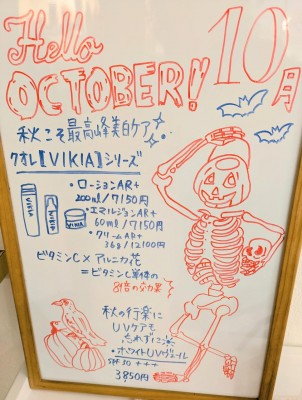 Hello
OCTOBER! 10月
秋こそ最高峰美白ケア
クオレ【VIKIA】シリーズ
・ローションAR+
200ml/7150円
・エマルジョンAR+
60ml/7150円
・クリームAR+
36g/12100円
VIKIA
VIKIA
VIKIA
ビタミンC×アルニカ花
=ビタミンC単体の
8倍の効果
秋の行楽に
UVケアも
忘れずに
・ホワイトUVヴェール
SPF30 +++
3850円